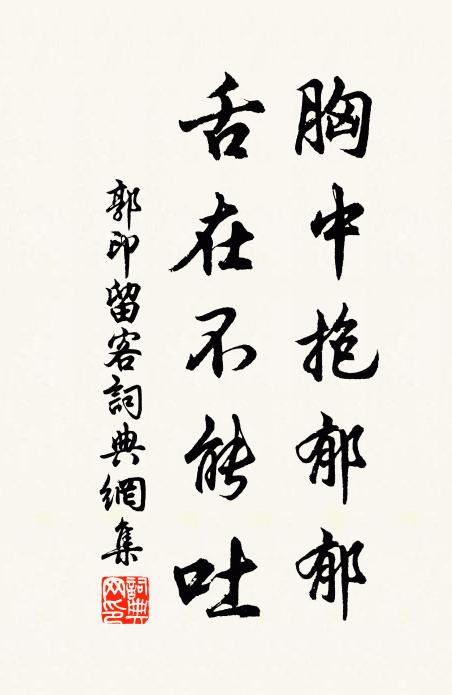 胸中抱郁郁
舌在不能吐
郭印留客詞典網集
詞典網印